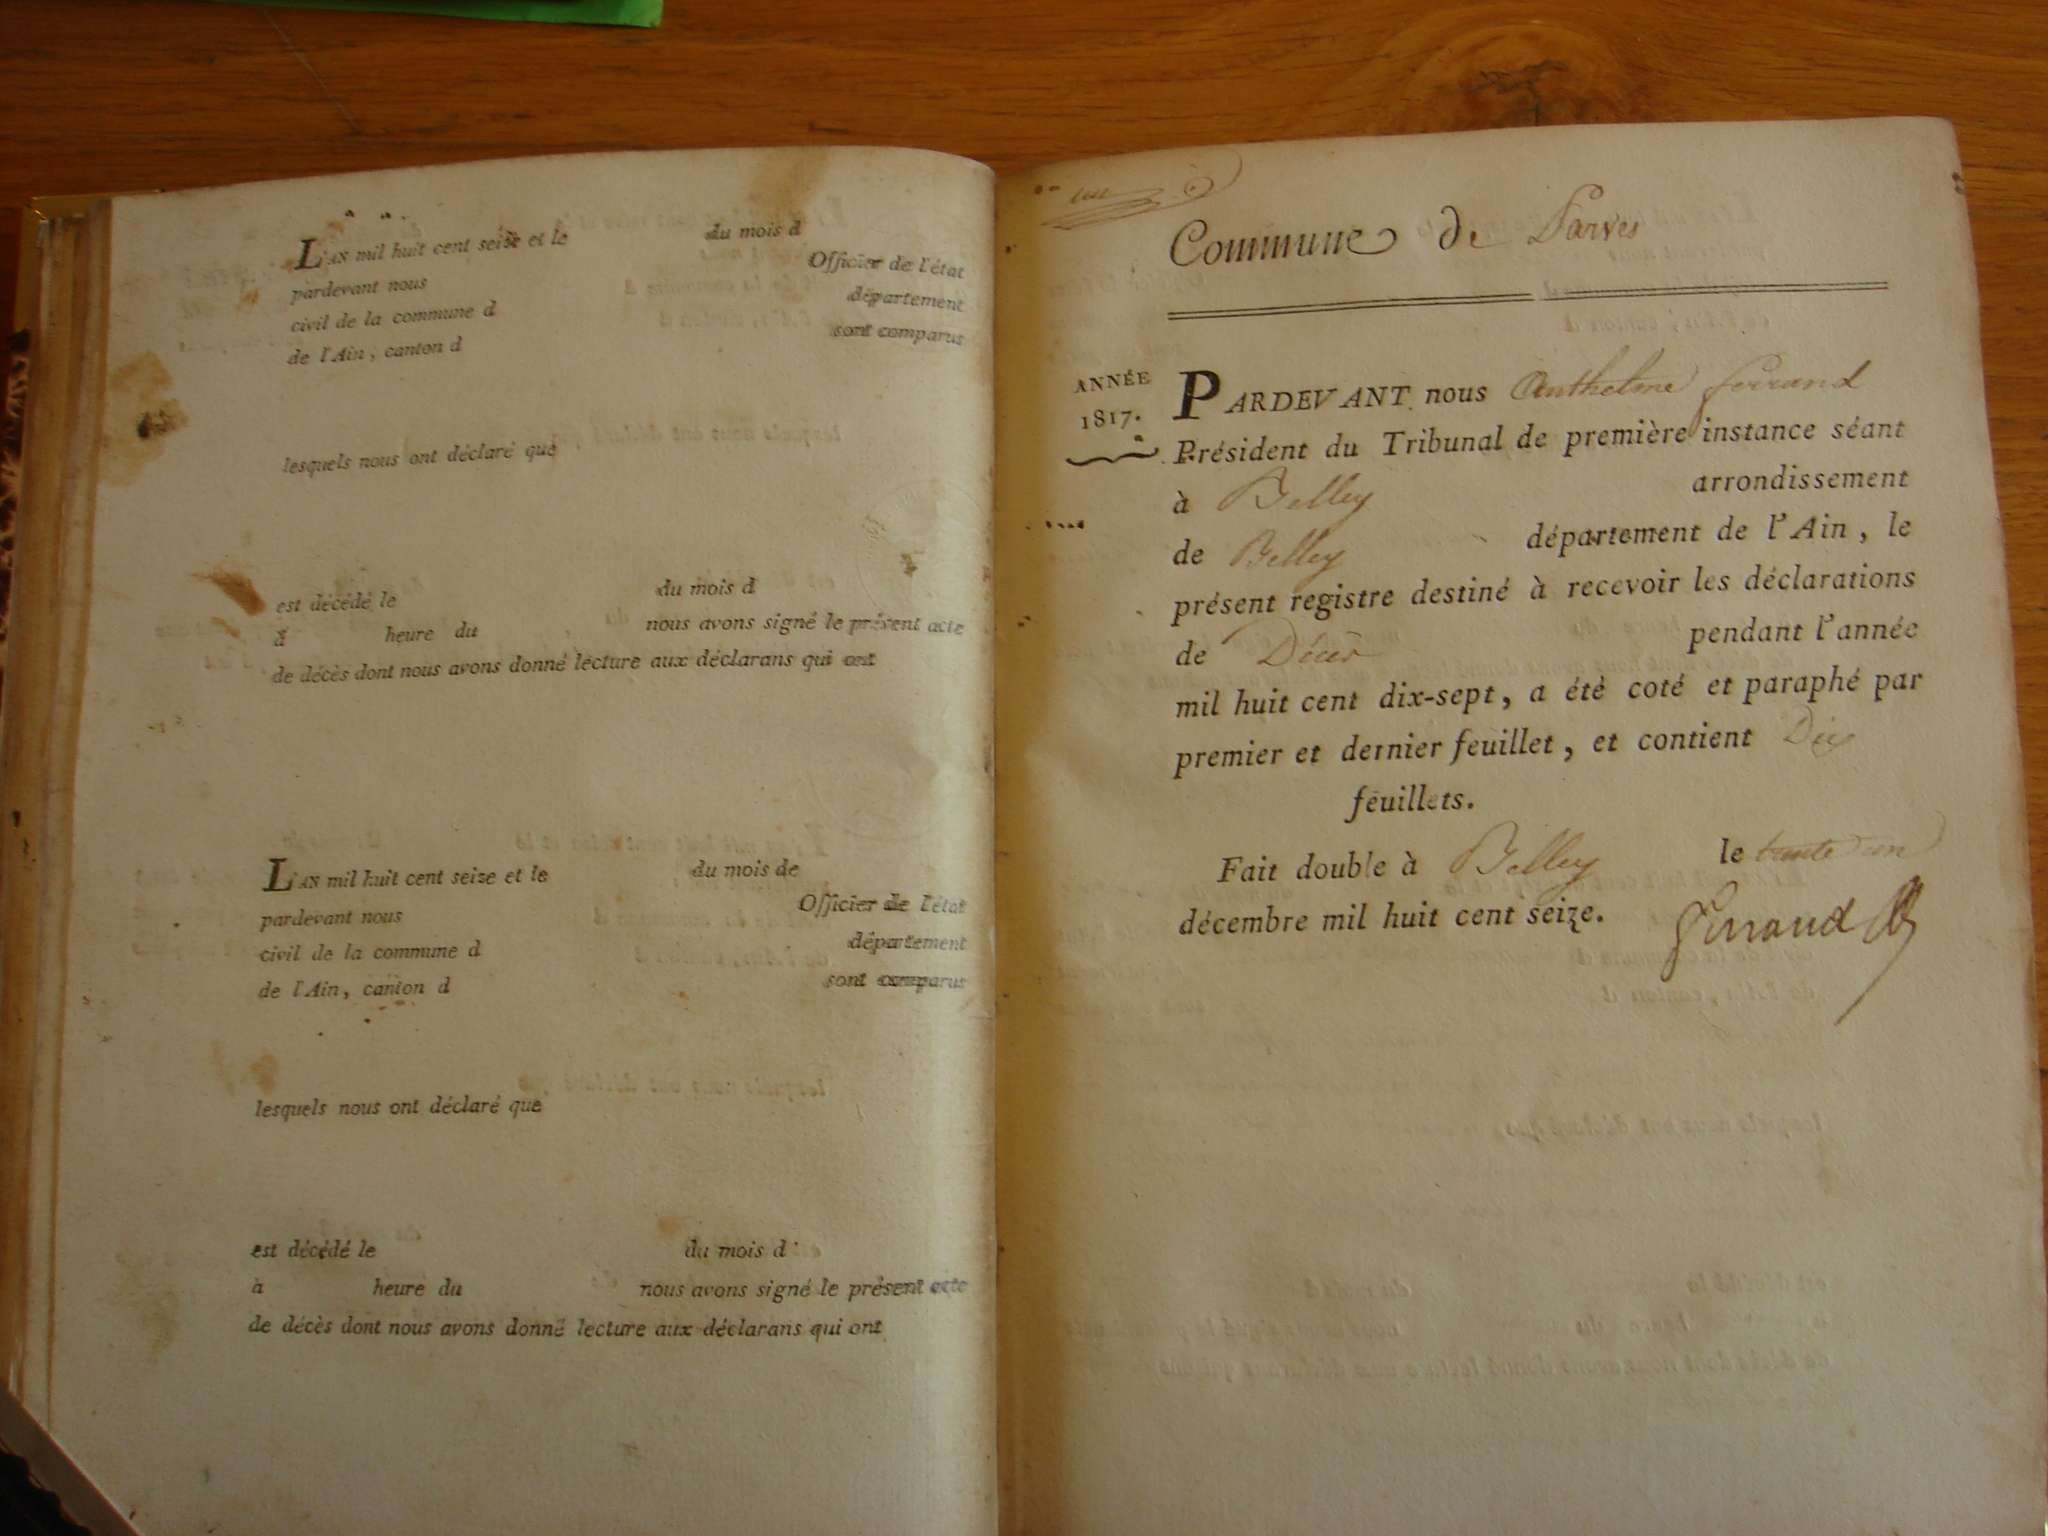 L'AN mil huit cent seize et le du mois d
pardevant nous Officier de l'état
civil de la commune d département
de l'Ain, canton d sont comparus
lesquels nous ont déclaré que
est décédé le du mois d
à heure du nous avons signé le présent acte
de décès dont nous avons donné lecture aux déclarans qui ont
L'AN mil huit cent seize et le du mois de
pardevant nous Officier de l'état
civil de la commune d département
de l'Ain, canton d sont comparus
lesquels nous ont déclaré que
est décédé le du mois d
à heure du nous avons signé le présent acte
de décès dont nous avons donné lecture aux déclarans qui ont
Commune de Parves
ANNÉE
1817.
PARDEVANT nous Anthelme ferrand
Président du Tribunal de première instance séant
à Belley arrondissement
de Belley département de l'Ain, le
présent registre destiné à recevoir les déclarations
de Décès pendant l'année
mil huit cent dix-sept, a étè coté et paraphé par
premier et dernier feuillet, et contient Dix
feuillets.
Fait double à Belley le trente un
décembre mil huit cent seize.
Ferrand